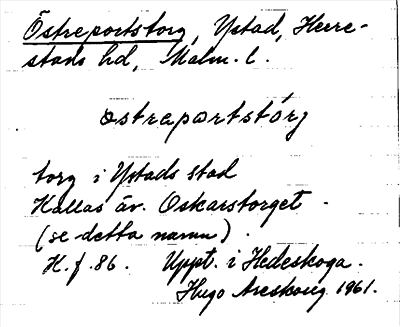 Östreportstorg, Ystad, Herre-
stads hd, Malm. l.
östrepωrtstórj
torg i Ystads stad
Kallas äv. Oskarstorget.
(se detta namn).
H. f. 86. Uppt. i Hedeskoga.
Hugo Areskoug 1961.